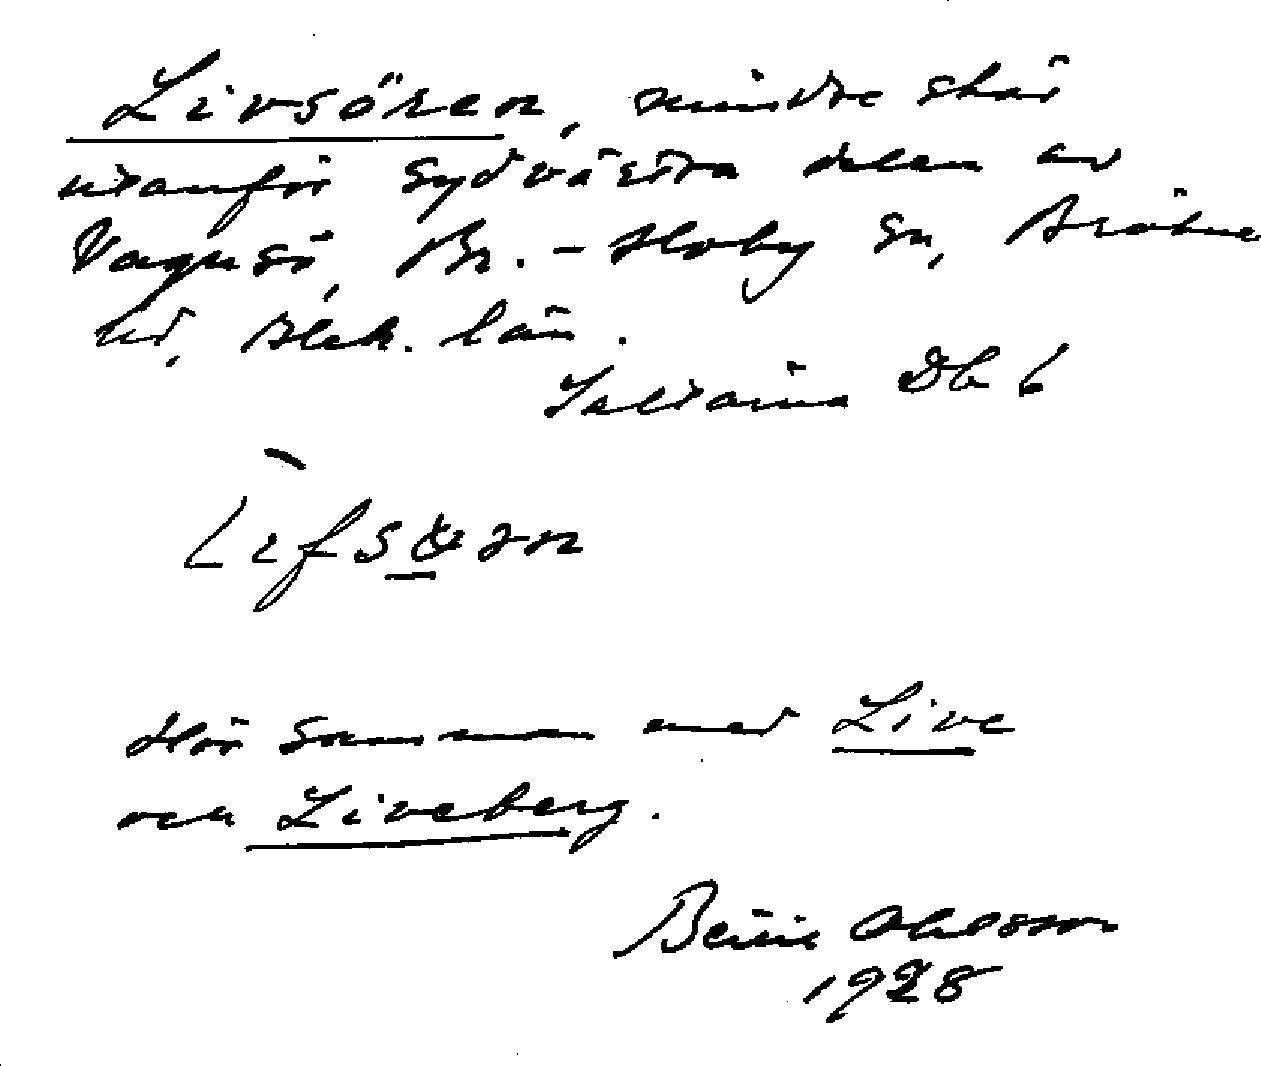 Livsören, mindre skär
utanför sydvästra delen av
Vagnsö, Br.-Hoby sn, Bräkne
hd, Blek. län.
Saltärna Db 6
Lifs ren
Hör samman med Live
och Liveberg.
Bertil Ohlsson
1928